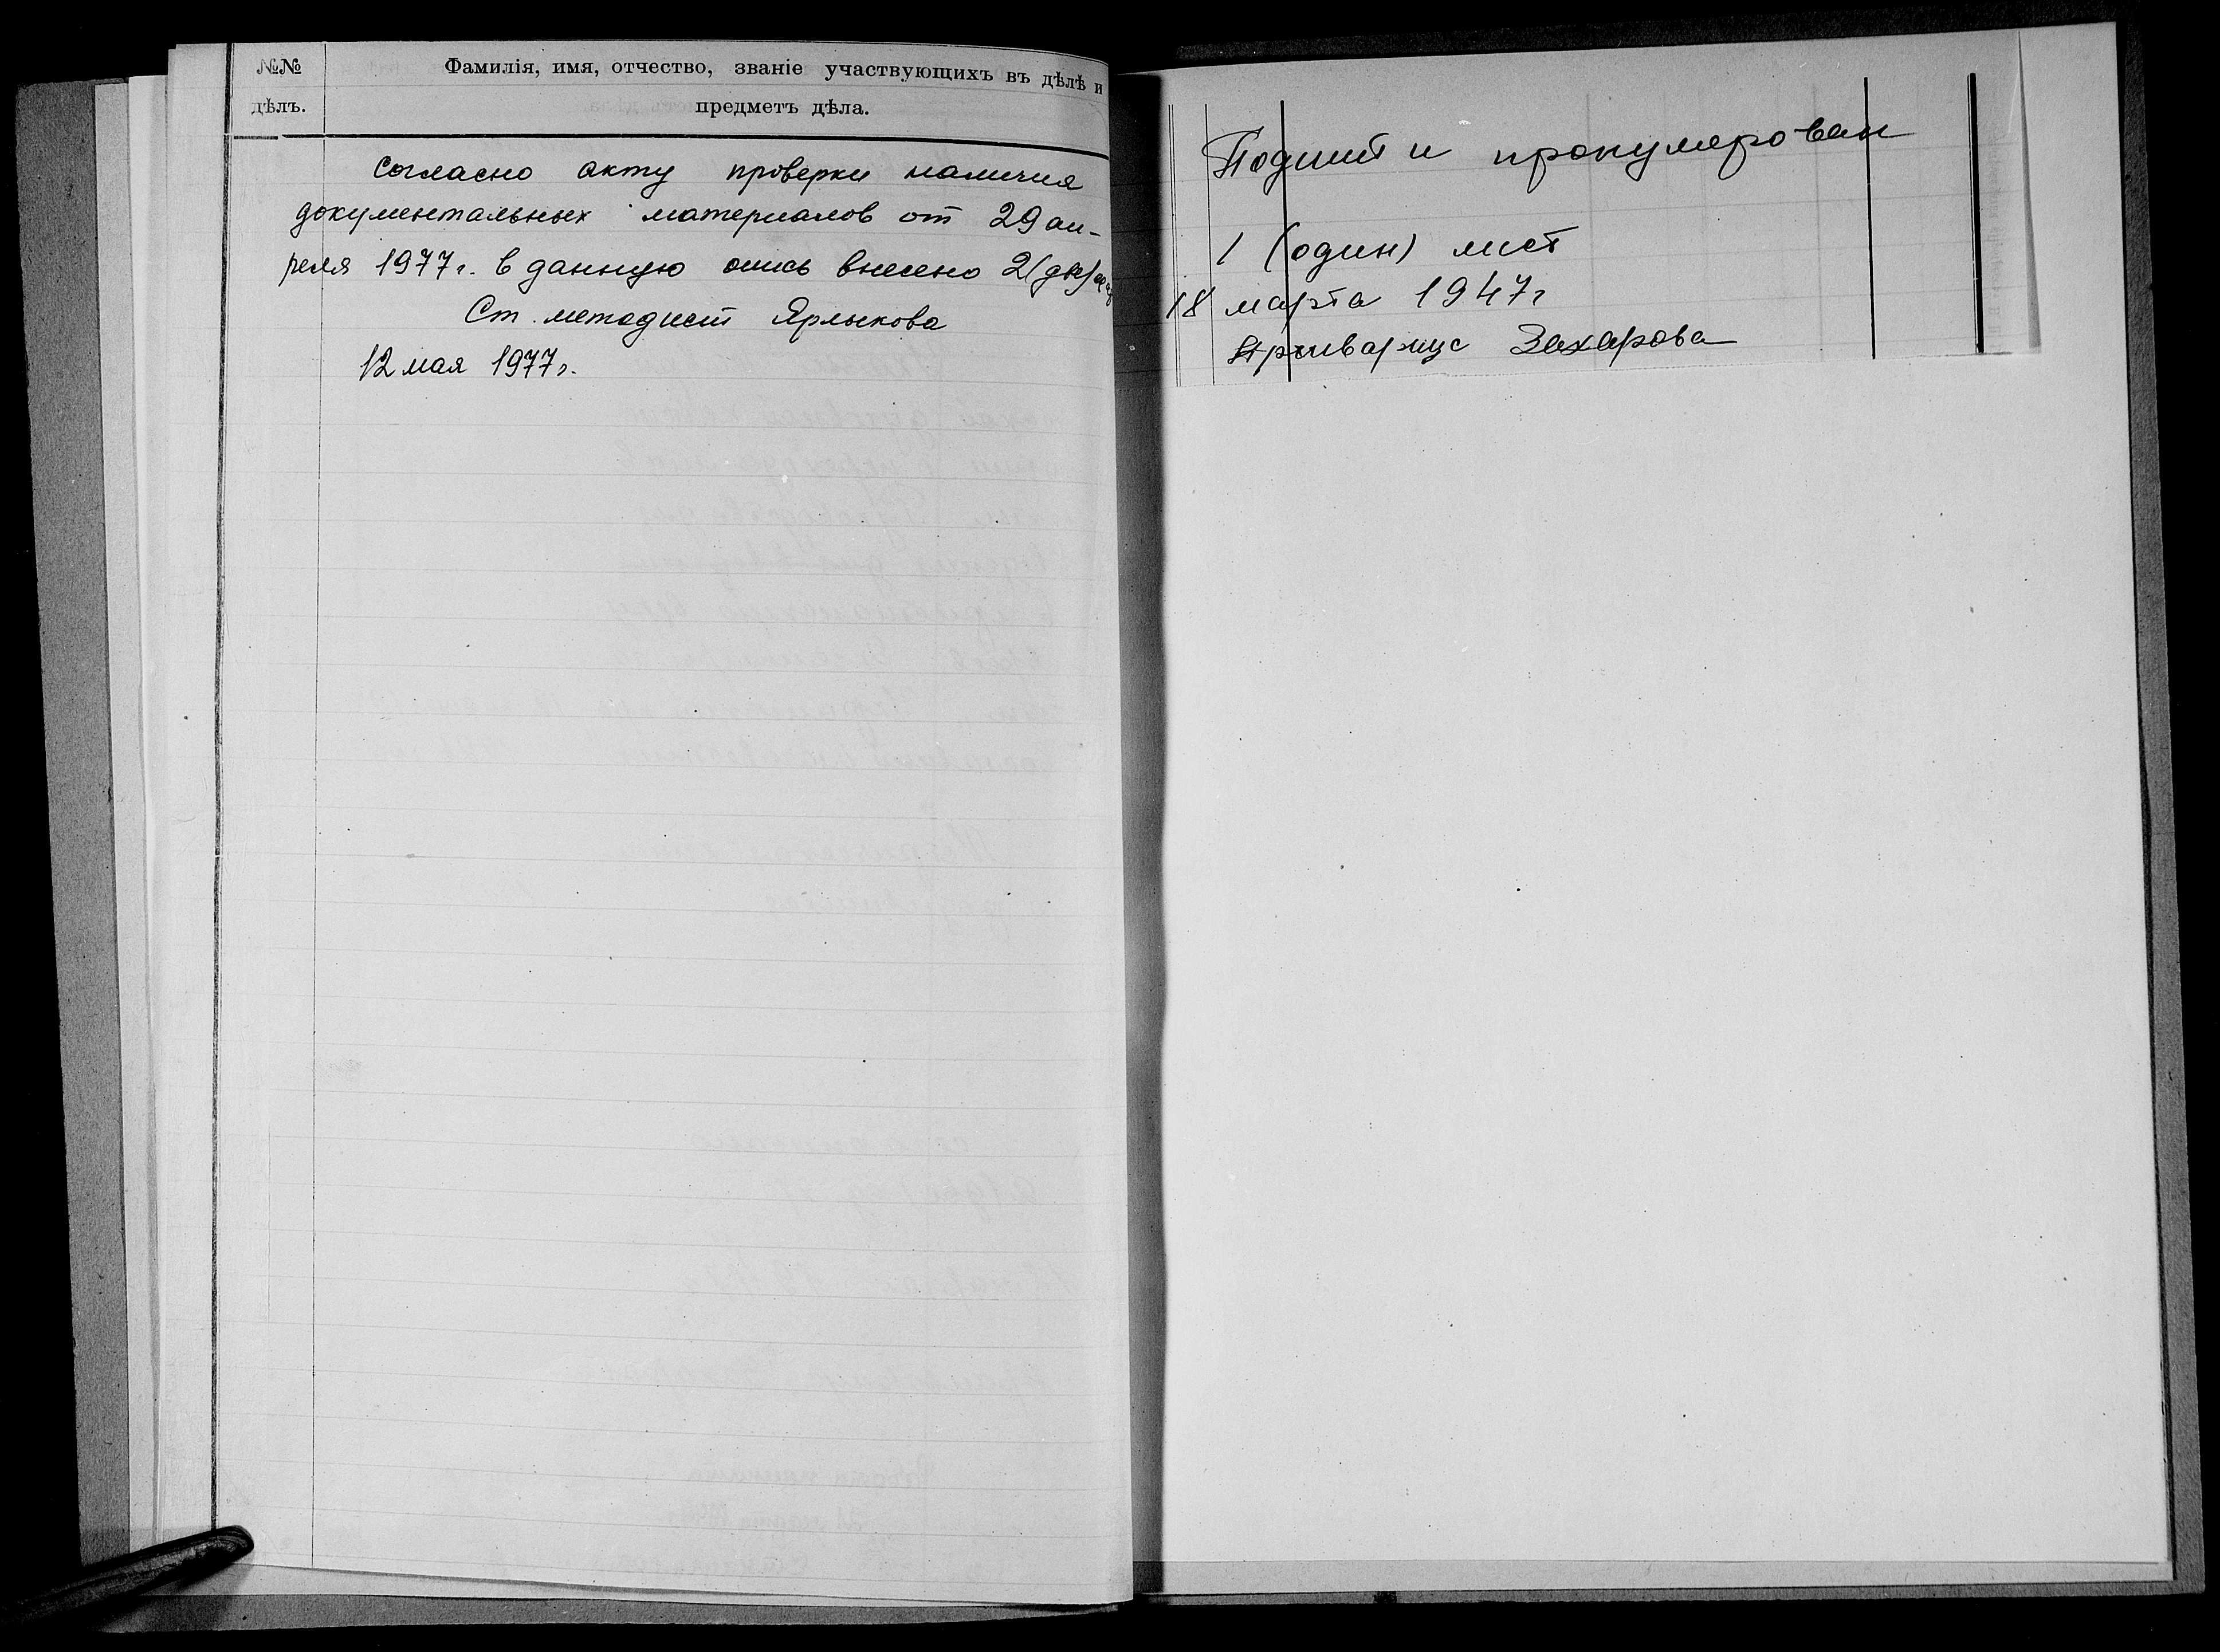 №№
дѣлъ.
Фамилія, имя, отчество, званіе участвующихъ въ дѣлѣ и
предметъ дѣла.
Согласно акту проверки наличия
документальных материалов от 29 ап-
реля 1977 г. в данную опись внесено 2 (две)
Ст. методист Ярлыкова
12 мая 1977 г.
Подшит и пронумерован
1 (один) лист
18 марта 1947 г
Захарова